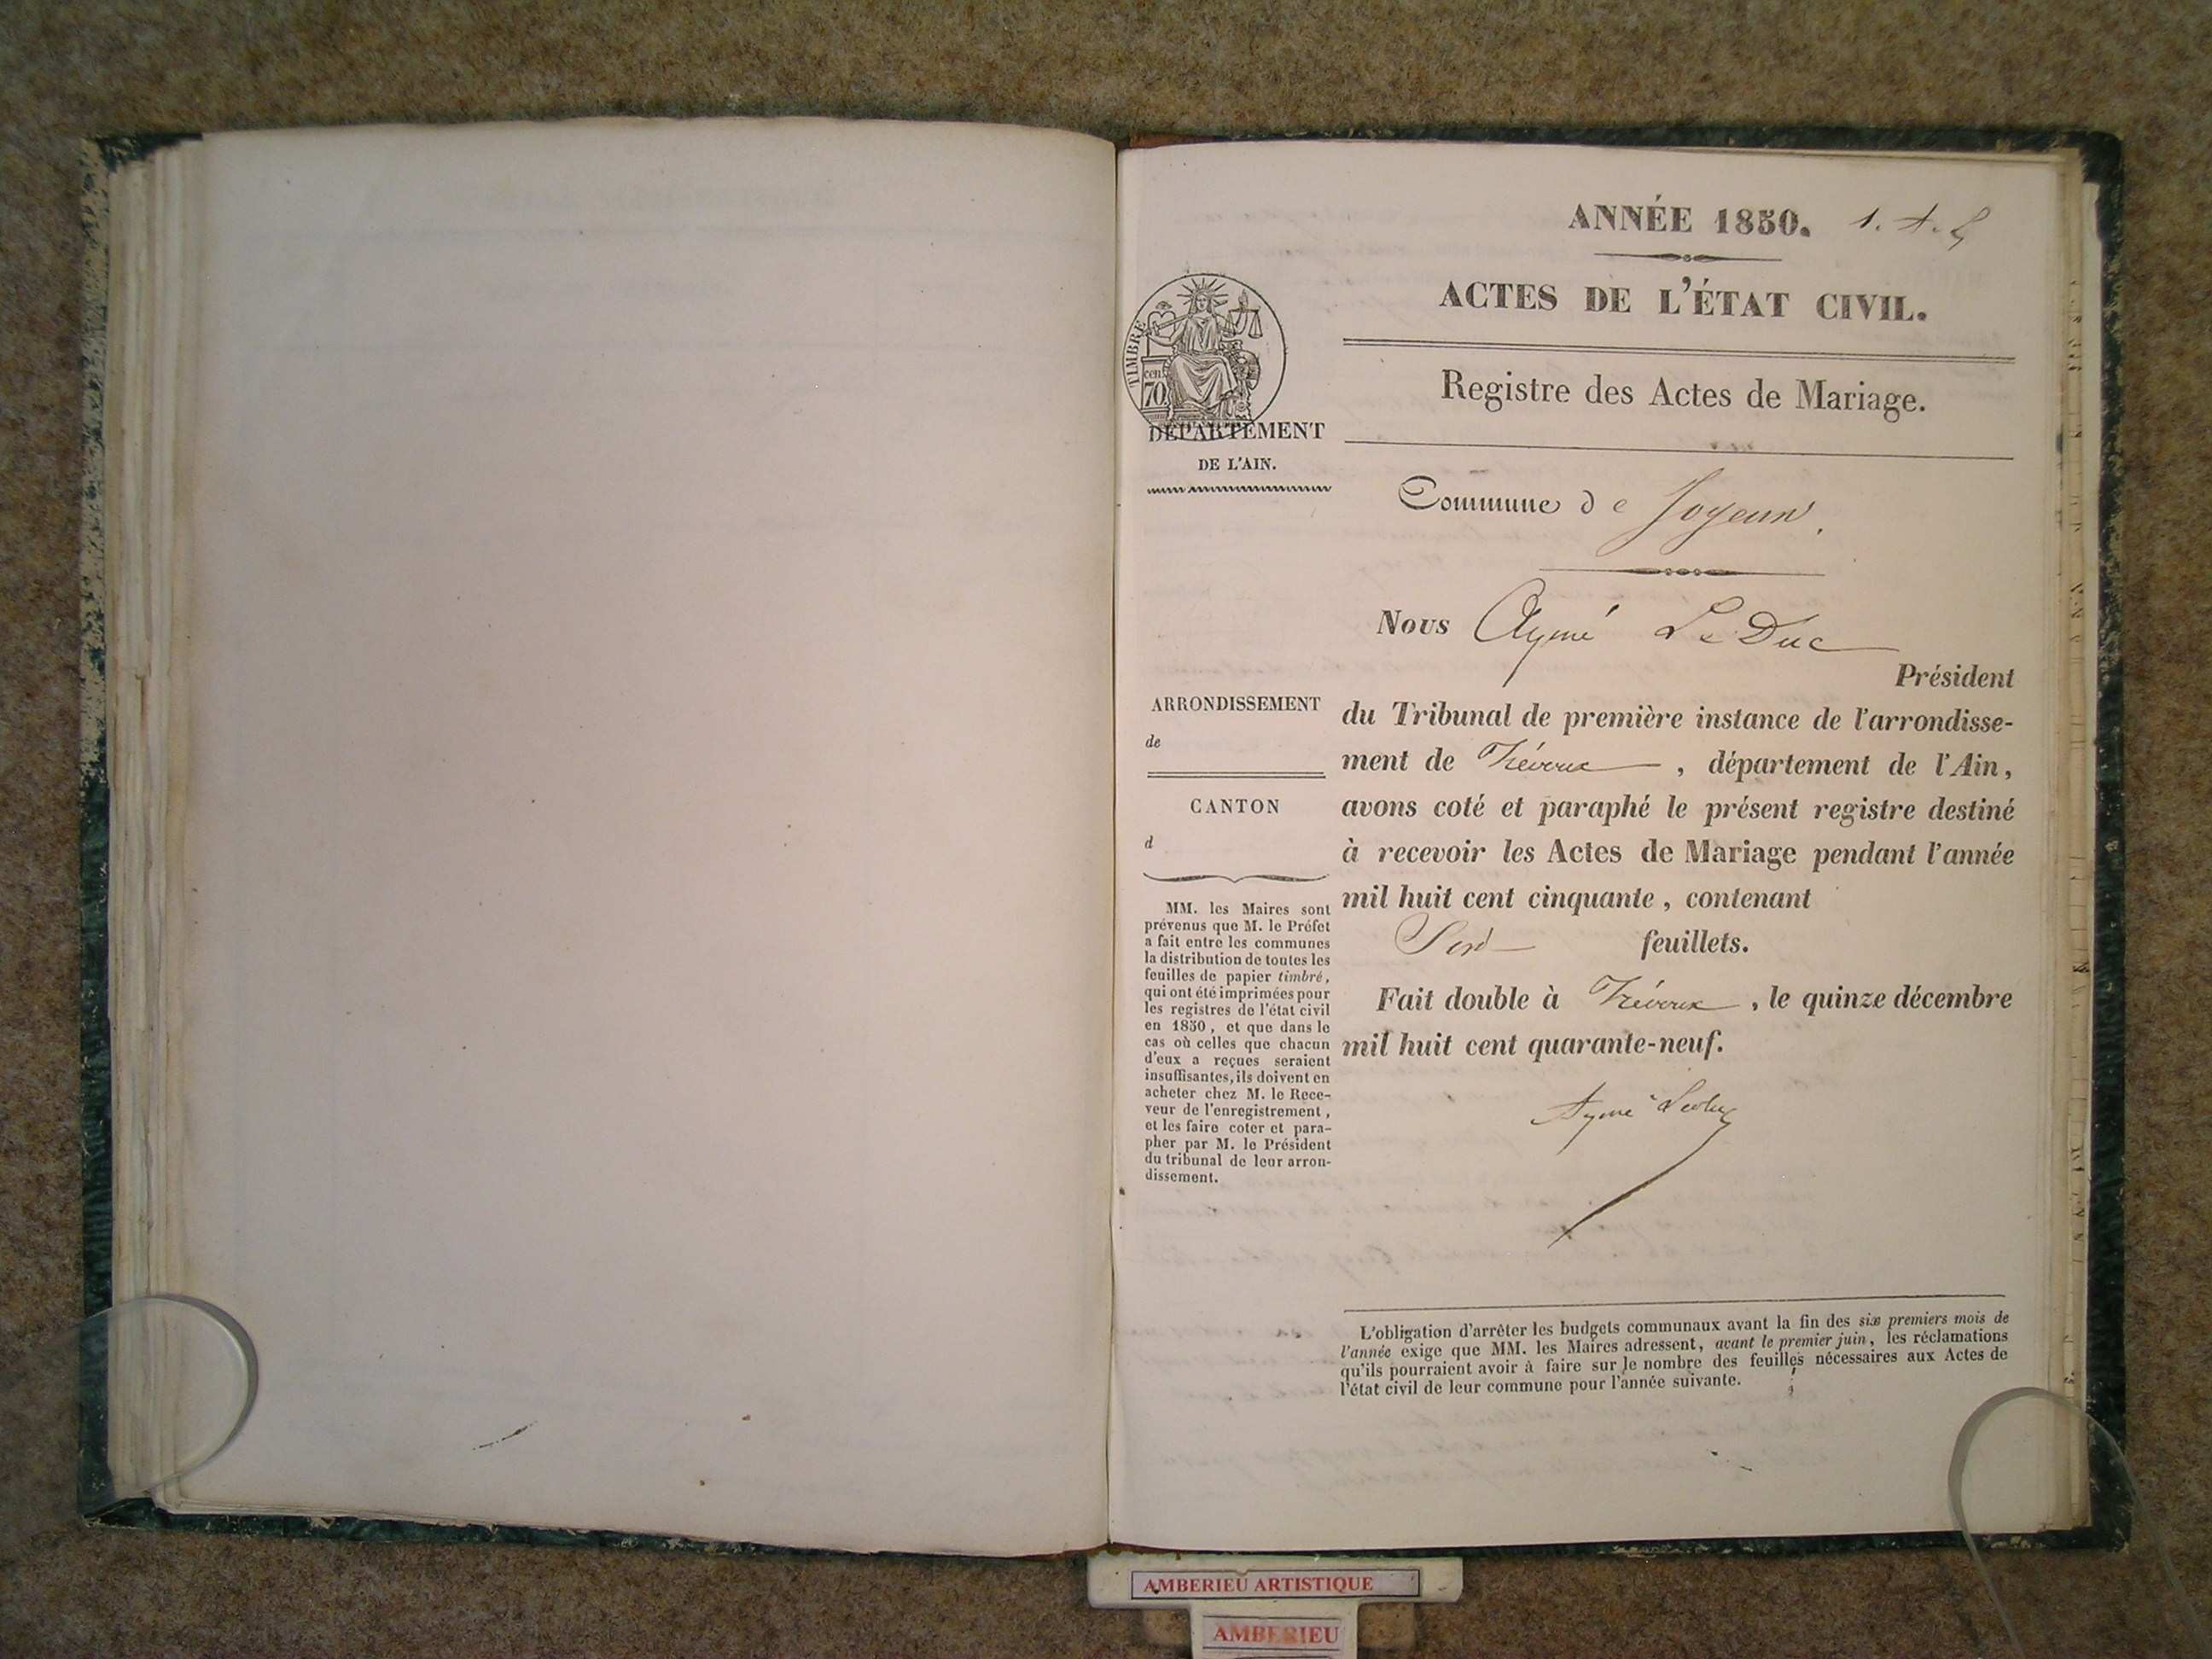 ANNÉE 1850. 1. A. L
ACTES DE L'ÉTAT CIVIL.
Registre des Actes de Mariage.
TIMBRE
cen.
70
DÉPARTEMENT
DE L'AIN.
Commune de Joyeux.
Nous Aymé Le Duc
Président
du Tribunal de première instance de l'arrondisse-
ment de Trévoux, département de l'Ain,
avons coté et paraphé le présent registre destiné
à recevoir les Actes de Mariage pendant l'année
mil huit cent cinquante, contenant
feuillets.
Fait double à Trévoux, le quinze décembre
mil huit cent quarante-neuf.
Aymé Leduc
ARRONDISSEMENT
de
CANTON
d
MM. les Maires sont
prévenus que M. le Préfet
a fait entre les communes
la distribution de toutes les
feuilles de papier timbré,
qui ont été imprimées pour
les registres de l'état civil
en 1850, et que dans le
cas où celles que chacun
d'eux a reçues seraient
insuffisantes, ils doivent en
acheter chez M. le Rece-
veur de l'enregistrement,
et les faire coter et para-
pher par M. le Président
du tribunal de leur arron-
dissement.
L'obligation d'arrêter les budgets communaux avant la fin des six premiers mois de
l'année exige que MM. les Maires adressent, avant le premier juin, les réclamations
qu'ils pourraient avoir à faire sur le nombre des feuilles nécessaires aux Actes de
l'état civil de leur commune pour l'année suivante.
AMBERIEU ARTISTIQUE
AMBERIEU